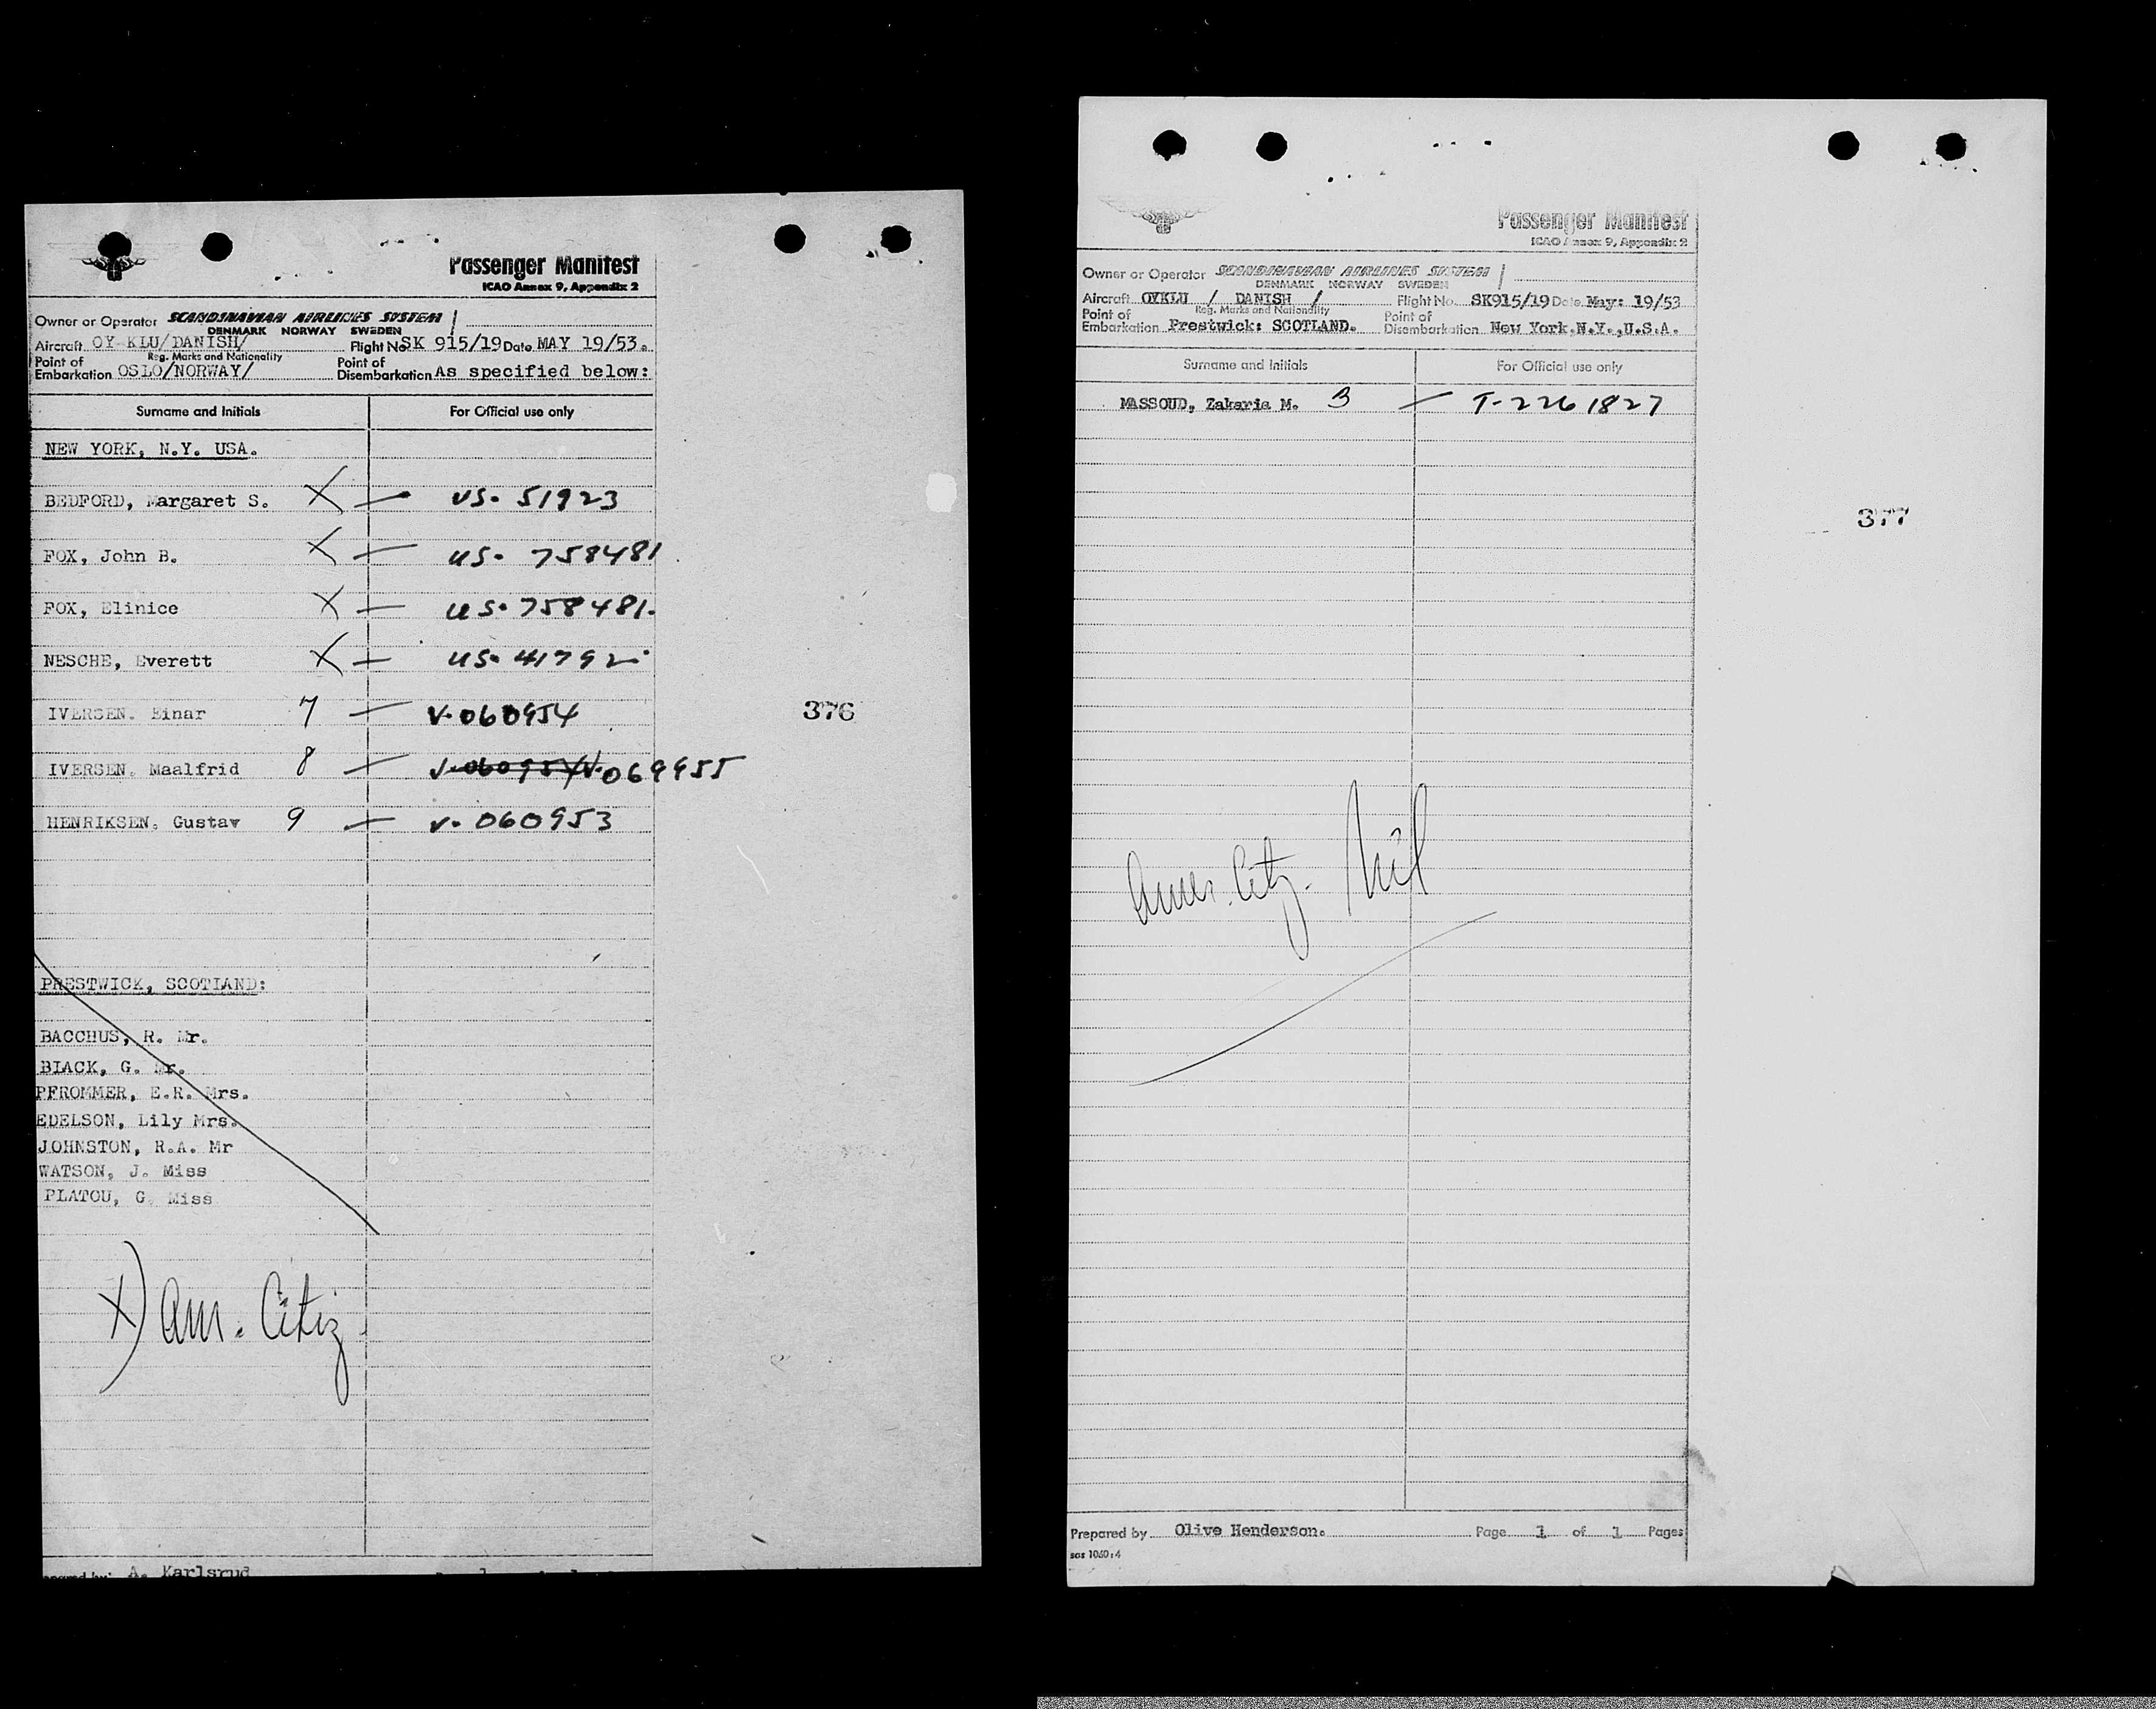 Passenger Manifest
ICAO Annex 9, Appendix 2
Owner or Operator SCANDINAVIAN AIRLINES SYSTEM
DENMARK NORWAY SWEDEN
Aircraft OY-KLU/DANISH/ Flight No. SK 915/19 Date MAY 19/53.
Reg. Marks and Nationality
Point of Embarkation OSLO/NORWAY/ Point of Disembarkation As specified below:
Surname and Initials For Official use only
NEW YORK, N.Y. USA.
BEDFORD, Margaret S. X — US. 51923
FOX, John B. X — US. 758481
FOX, Elinice X — US. 758481.
NESCHE, Everett X — US. 41792
IVERSEN. Einar 7 — V.060954
376
IVERSEN. Maalfrid 8 — V.060954 V.069955
HENRIKSEN. Gustav 9 — V. 060953
PRESTWICK, SCOTLAND:
BACCHUS, R. Mr.
BLACK, G. Mr.
PFROMMER, E.R. Mrs.
EDELSON, Lily Mrs.
JOHNSTON, R.A. Mr
WATSON, J. Miss
PLATOU, G. Miss
X) Am. Citiz.
A. Karlsrud
Passenger Manifest
ICAO Annex 9, Appendix 2
Owner or Operator SCANDINAVIAN AIRLINES SYSTEM
DENMARK NORWAY SWEDEN
Aircraft OYKLU / DANISH / Flight No. SK915/19 Date May: 19/53
Reg. Marks and Nationality
Point of Embarkation Prestwick: SCOTLAND. Point of Disembarkation New York.N.Y.,U.S.A.
Surname and Initials For Official use only
MASSOUD, Zakaria M. 3 — T-2261827
377
Amer. Citz. Nil
Prepared by Olive Henderson. Page 1 of 1 Pages
sas 1060:4